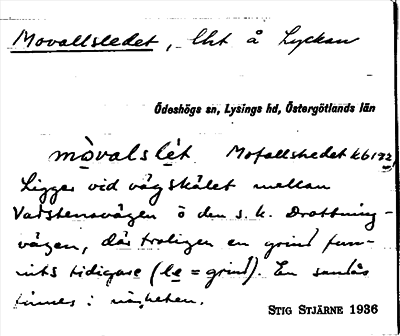 Movallsledet, lht å Lyckan
Ödeshögs sn, Lysings hd, Östergötlands län
mòvalslét Mofallshedet kb 172
Ligger vid vägskälet mellan
Vadstenavägen o den s. k. Drottning-
vägen, där troligen en grind fun-
nits tidigare (le = grind). En sandås
finnes i närheten.
STIG STJÄRNE 1936